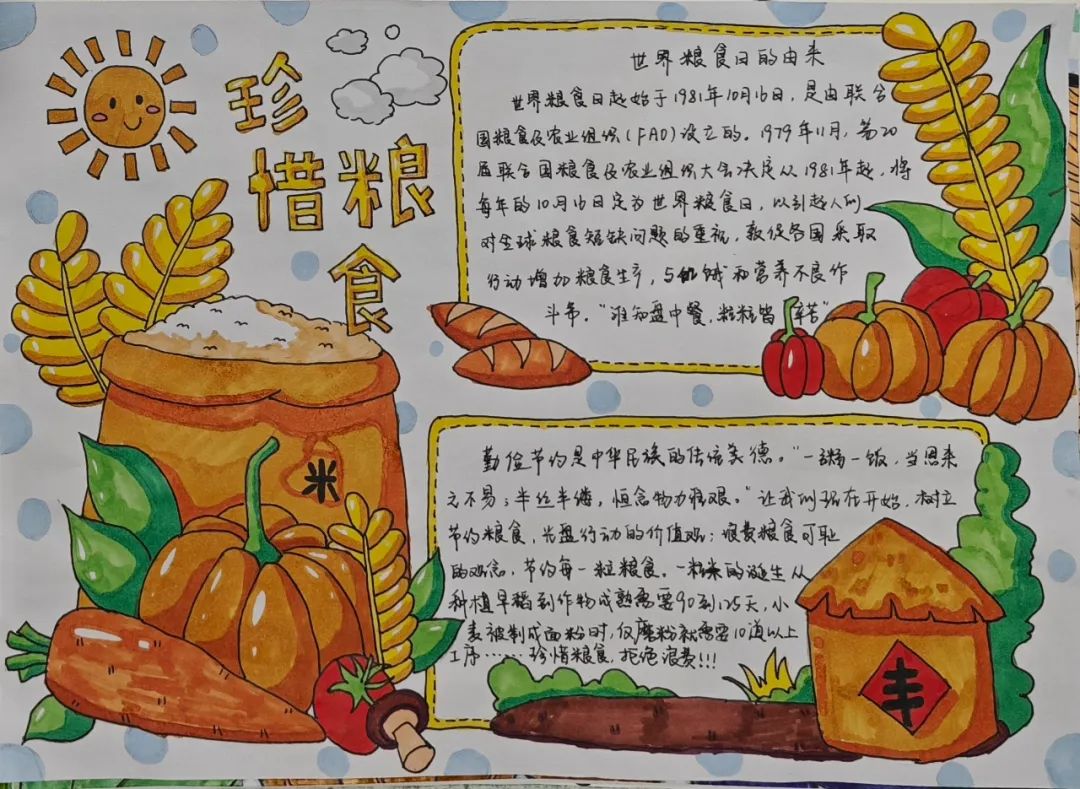 珍
惜粮
食
世界粮食日的由来
世界粮食日起始于1981年10月16日，是由联合
国粮食及农业组织(FAO)设立的。1979年11月，第20
届联合国粮食及农业组织大会决定从1981年起，将
每年的10月16日定为世界粮食日，以引起人们
对全球粮食短缺问题的重视，敦促各国采取
行动增加粮食生产，与饥饿和营养不良作
斗争。“谁知盘中餐，粒粒皆辛苦”
米
勤俭节约是中华民族的传统美德。“一粥一饭，当思来
之不易；半丝半缕，恒念物力维艰。”让我们现在开始，树立
节约粮食，光盘行动的价值观；浪费粮食可耻
的观念，节约每一粒粮食。一粒米的诞生从
种植早稻到作物成熟需要90到125天，小
麦被制成面粉时，仅磨粉就需要10道以上
工序……珍惜粮食，拒绝浪费!!!
丰